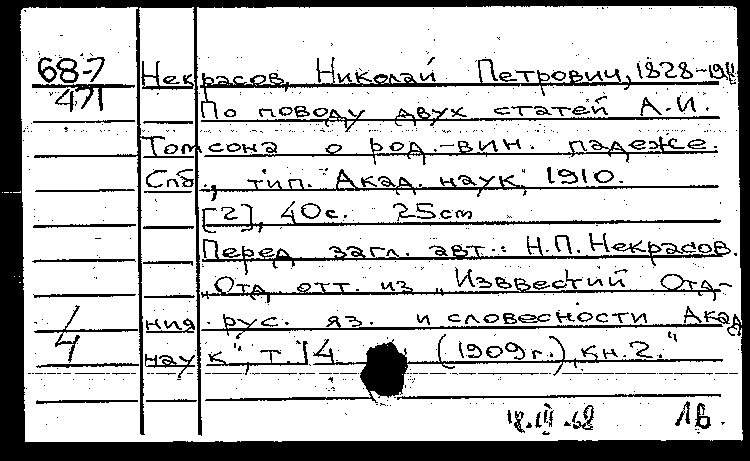 68-7 Некрасов, Николай Петрович, 1828-191
471 По поводу двух статей А.И.
Томсона о род.-вин. падеже.
Спб., тип. Акад. наук, 1910.
[2], 40с. 25cm
Перед загл. авт.: Н.П. Некрасов.
"Отд. отт. из "Известий Отд-
ния рус. яз. и словесности Акад
наук", т. 14 (1909г.), кн. 2."
18.III.68 ЛВ.